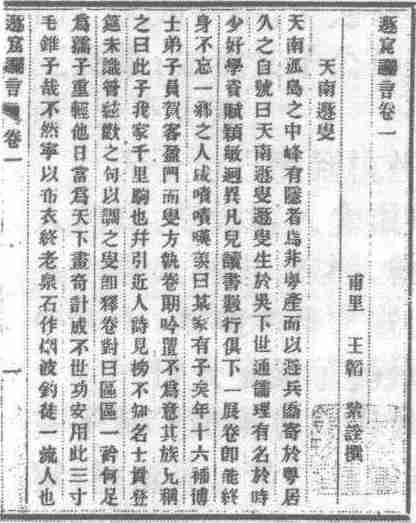 遯窟讕言卷一
甫里 王韜 紫詮撰
天南遯叟
天南孤島之中峰有隱者焉非粤產而以避兵僑寄於粤居
久之自號曰天南遯叟遯叟生於吳下世通儒理有名於時
少好學資賦穎敏迥異凡兒讀書數行俱下一展卷即能終
身不忘一鄉之人咸嘖嘖嘆羨曰某家有子矣年十六補博
士弟子員賀客盈門而叟方執卷朗吟置不爲意其族兄稱
之曰此子我家千里駒也幷引近人詩見榜不知名士貫登
筵未識管絃歡之句以調之叟卽釋卷對曰區區一衿何足
爲孺子重輕他日當爲天下畫奇計成不世功安用此三寸
毛錐子哉不然寧以布衣終老泉石作烟波釣徒一流人也
遯窟讕言 卷一
一